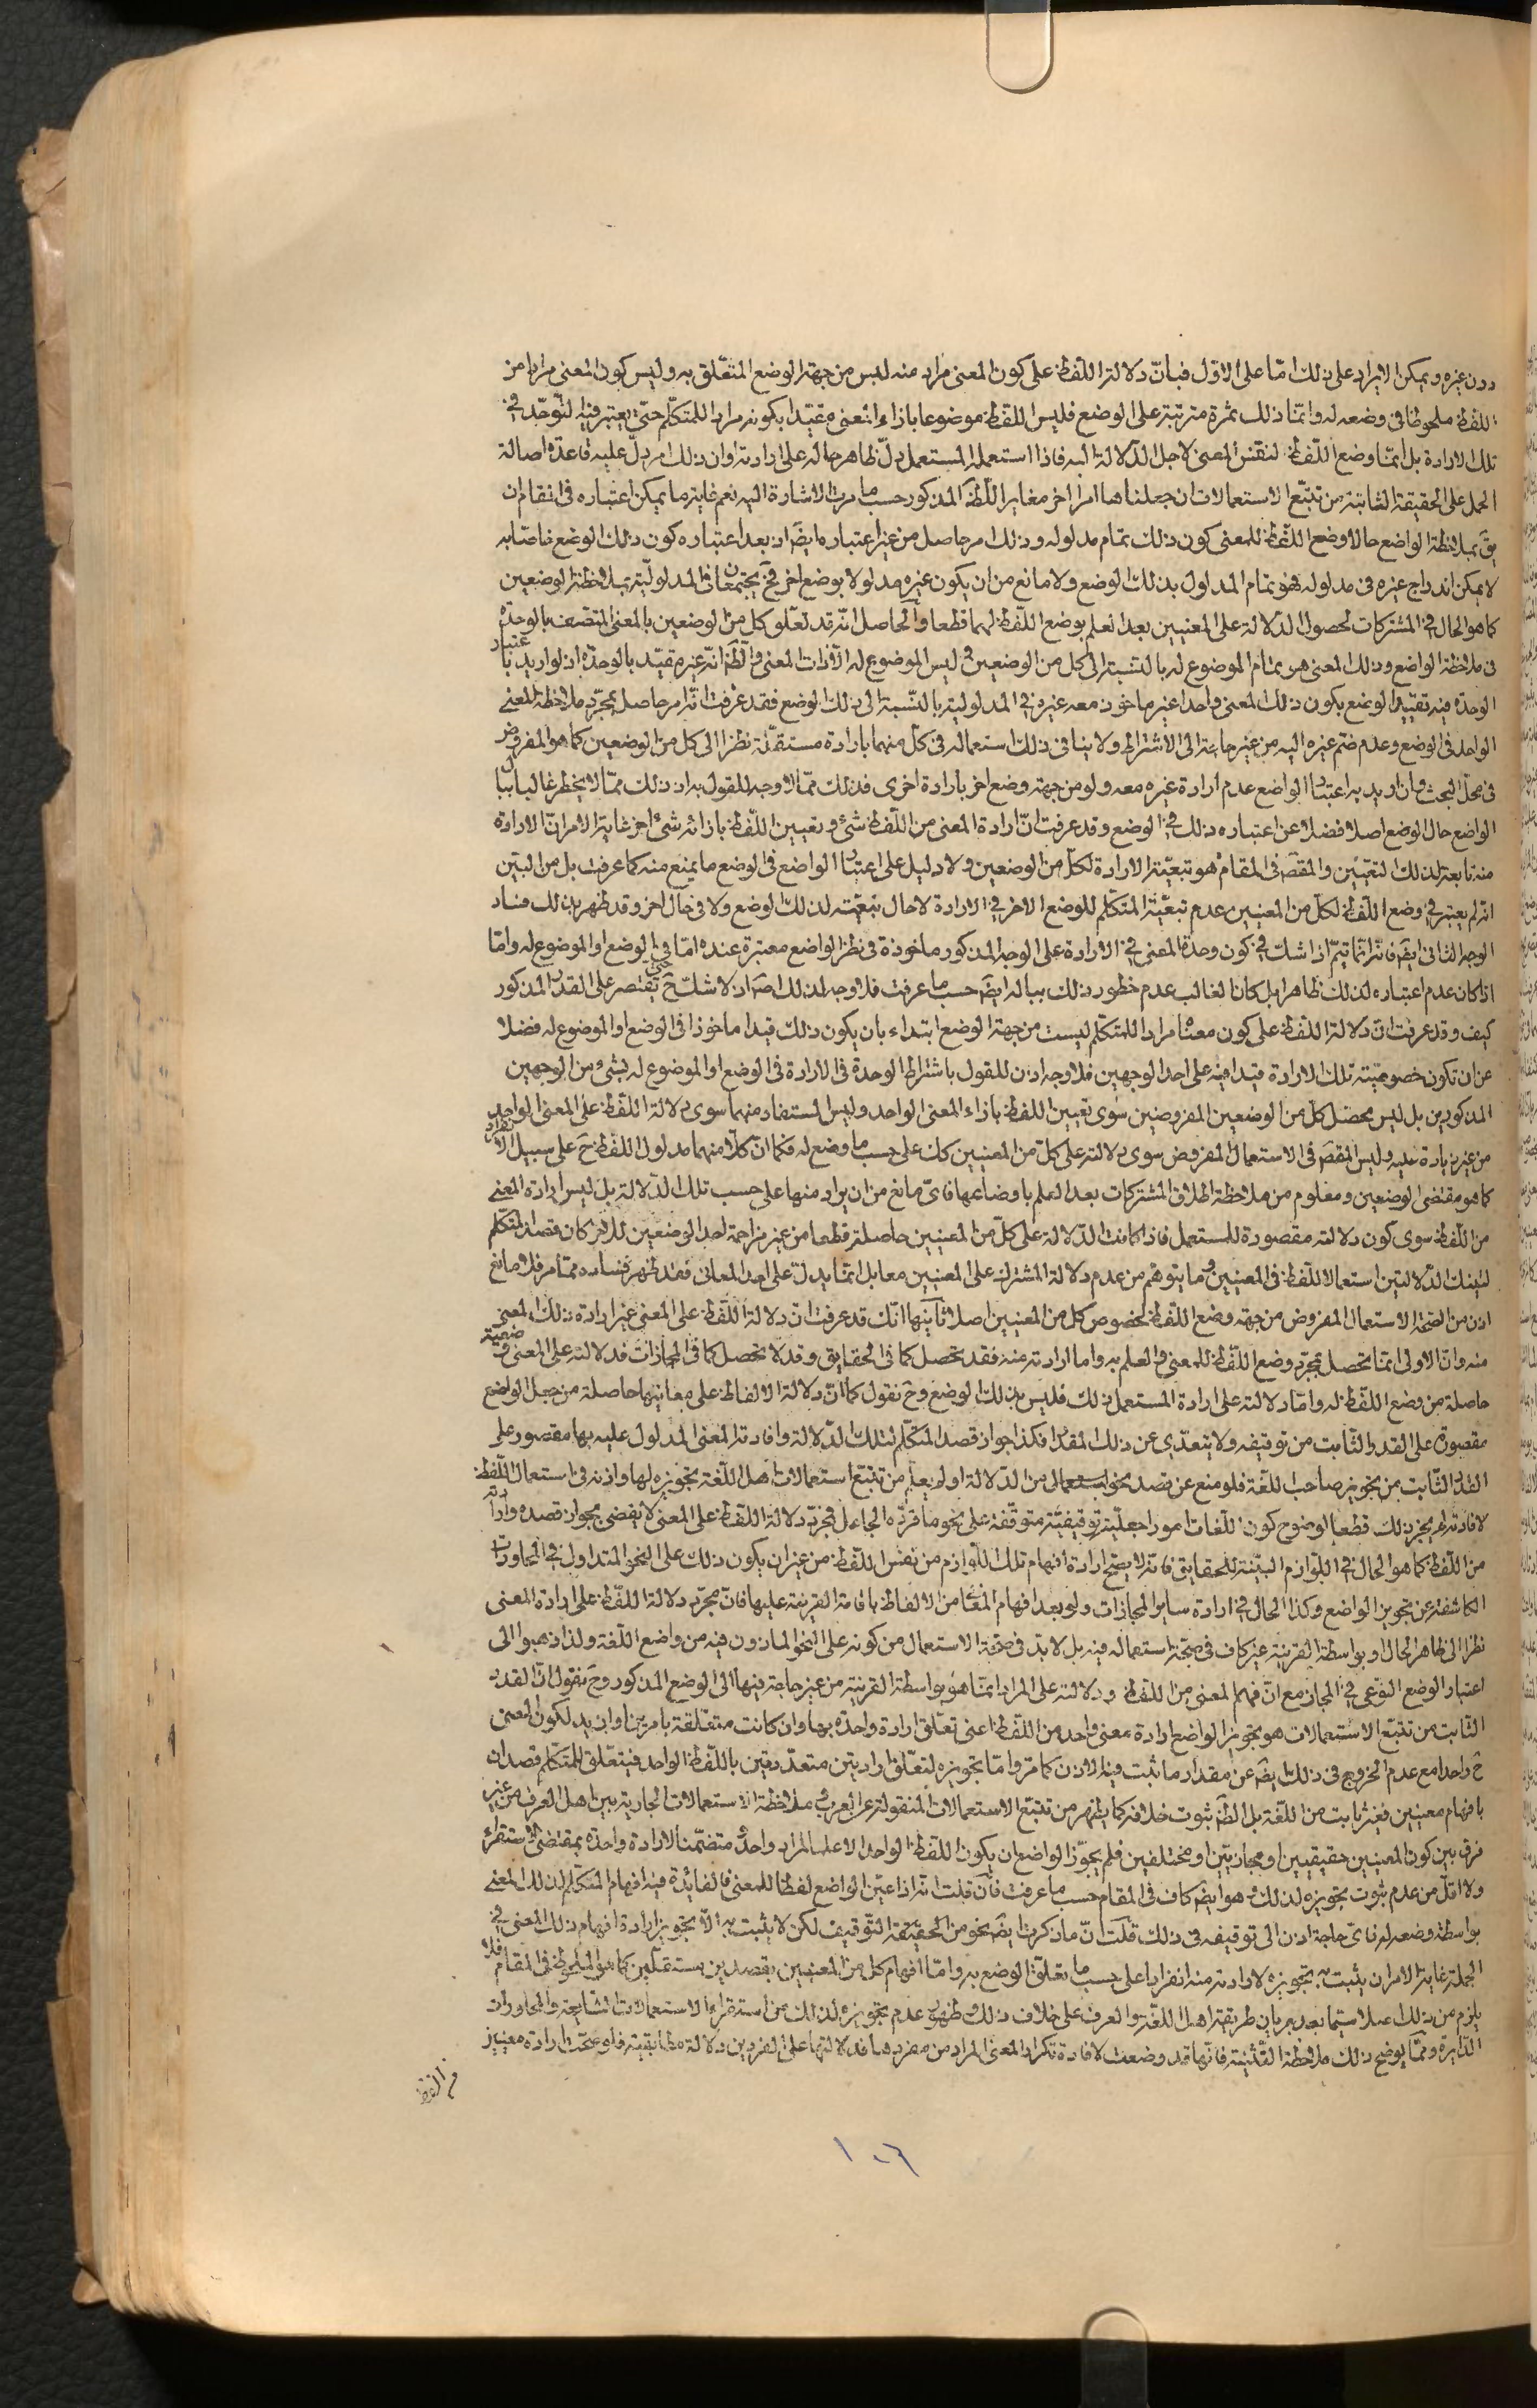 دون غيره ويمكن الايراد على ذلك امّا على الاوّل فبانّ دلالة اللّفظ على كون المعنى مراد منه ليس من جهة الوضع المتعلّق به وليس كون المعنى مرادا من
اللفظ ملحوظا في وضعه له وانّما ذلك ثمرة مترتبة على الوضع فليس اللفظ موضوعا بازاء المعنى مقيّدا بكونه مرادا للمتكلّم حتى يعتبر فيه التوحّد في
تلك الارادة بل انّما وضع اللّفظ لنفس المعنى لاجل الدّلالة اليه فاذا استعمله المستعمل دلّ ظاهر حاله على ارادته وان ذلك امر يدلّ عليه قاعدة اصالة
الحمل على الحقيقة الثابتة من تتبّع الاستعمالات ان جعلناها امرا اخر مغاير اللظّ المذكور حسب ما مرت الاشارة اليه نعم غاية ما يمكن اعتباره في المقام ان
يقَ بملاحظة الواضع حال وضع اللّفظ للمعنى كون ذلك تمام مدلوله وذلك امر حاصل من غير اعتباره ايضَ اذ بعد اعتباره كون ذلك الوضع خاصّا به
لا يمكن اندراج غيره في مدلوله فهو تمام المدلول بذلك الوضع ولا مانع من ان يكون غيره مدلولا بوضع اخر فحَ يجتمعان في المدلوليّة بملاحظة الوضعين
كما هو الحال في المشتركات لحصول الدّلالة على المعنيين بعد العلم بوضع اللّفظ لهما قطعا والحاصل انّه قد تعلّق كل من الوضعين بالمعنى المتّصف بالوحدة
في ملاحظة الواضع وذلك المعنى هو تمام الموضوع له بالنسبة الى كل من الوضعين وليس الموضوع له الّا ذات المعنى والظّ انّه غير مقيّد بالوحدة اذ لو اريد باعتبار
الوحدة فيه تقييد الوضع بكون ذلك المعنى واحدا غير ماخوذ معه غيره في المدلولية بالنّسبة الى ذلك الوضع فقد عرفت انّه امر حاصل بمجرّد ملاحظة المعنى
الواحد في الوضع وعدم ضم غيره اليه من غير حاجة الى الاشتراط ولا ينافي ذلك استعماله في كلّ منهما بارادة مستقلّة نظرا الى كل من الوضعين كما هو المفروض
في محلّ البحث وان اريد به اعتبار الواضع عدم ارادة غيره معه ولو من جهة وضع اخر بارادة اخرى فذلك ممّا لا وجه للقول به اذ ذلك ممّا لا يخطر غالبا ببال
الواضع حال الوضع اصلا فضلا عن اعتباره ذلك في الوضع وقد عرفت انّ ارادة المعنى من اللّفظ شئ وتعيين اللّفظ بازائه شئ اخر غاية الامر انّ الارادة
منه تابعة لذلك التعيين والمقصَ في المقام هو تبعيّة الارادة لكلّ من الوضعين ولا دليل على اعتبار الواضع في الوضع ما يمنع منه كما عرفت بل من البيّن
انه لم يعتبر في وضع اللّفظ لكلّ من المعنيين عدم تبعيّة المتكلّم للوضع الاخر في الارادة لا حال تبعيّته لذلك الوضع ولا في حال اخر وقد ظهر بذلك فساد
الوجه الثاني ايضَ فانّه انّما يتمّ اذا شكّ في كون وحدة المعنى في الارادة على الوجه المذكور ماخوذة في نظر الواضع معتبرة عنده امّا في الوضع او الموضوع له وامّا
اذا كان عدم اعتباره لذلك ظاهرا بل كان الغالب عدم خطور ذلك بباله ايضَ حسب ما عرفت فلا وجه لذلك اصَ اذ لا شك حَ حتى يقتصر على القدر المذكور
كيف وقد عرفت انّ دلالة اللّفظ على كون معناه مرادا للمتكلّم ليست من جهة الوضع ابتداء بان يكون ذلك قيدا ماخوذا في الوضع او الموضوع له فضلا
عن ان تكون خصوصيّته تلك الارادة قيدا فيه على احد الوجهين فلا وجه اذن للقول باشتراط الوحدة في الارادة في الوضع او الموضوع له بشئ من الوجهين
المذكورين بل ليس محصّل كلّ من الوضعين المفروضين سوى تعيين اللفظ بازاء المعنى الواحد وليس المستفاد منهما سوى دلالة اللّفظ على المعنى الواحد
من غير زيادة عليه وليس المقصَ في الاستعمال المفروض سوى دلالته على كلّ من المعنيين كك على حسب ما وضع له فكما انّ كلّا منهما مدلول اللفظ حَ على سبيل الانفراد
كما هو مقتضى الوضعين ومعلوم من ملاحظة اطلاق المشتركات بعد العلم باوضاعها فايّ مانع من ان يراد منها على حسب تلك الدّلالة بل ليس ارادة المعنى
من اللّفظ سوى كون دلالته مقصودة للمستعمل فاذا كانت الدّلالة على كلّ من المعنيين حاصلة قطعا من غير مزاحمة احد الوضعين للاخر كان قصد المتكلم
لتينك الدّلالتين استعمالا للّفظ في المعنيين وما يتوهّم من عدم دلالة المشترك على المعنيين معا بل انّما يدلّ على احد المعاني فقد ظهر فساده ممّا مر فلا مانع
اذن من الصّحة الاستعمال المفروض من جهة وضع اللّفظ لخصوص كل من المعنيين اصلا ثانيها انّك قد عرفت انّ دلالة اللّفظ على المعنى غير ارادة ذلك المعنى
منه وانّ الاولى انّما يحصل بمجرّد وضع اللّفظ للمعنى والعلم به واما ارادته منه فقد يحصل كما في الحقايق وقد لا يحصل كما في المجازات فدلالته على المعنى وضعيّة
حاصلة من وضع اللّفظ له وامّا دلالته على ارادة المستعمل ذلك فليس بذلك الوضع وحَ نقول كما انّ دلالة الالفاظ على معانيها حاصلة من جعل الواضع
مقصورة على القدر الثّابت من توقيفه ولا يتعدّي عن ذلك المقدار فكذا جواز قصد المتكلّم لتلك الدّلالة وافادته المعنى المدلول عليه بها مقصور على
القدر الثّابت من تجويز صاحب اللّغة فلو منع عن قصد نحو استعمالى من الدّلالة او لم يعلم من تتبّع استعمالات اهل اللّغة تجويزه لها واذنه في استعمال اللّفظ
لافادته لم يجز ذلك قطعا لوضوح كون اللّغات امورا جعليّة توقيفيّة متوقّفة على نحو ما قرّره الجاعل فمجرّد دلالة اللّفظ على المعنى لا يقضي بجواز قصده وارادته
من اللّفظ كما هو الحال في اللّوازم البيّنة للحقايق فانّه لا يصحّ ارادة افهام تلك اللّوازم من نفس اللّفظ من غير ان يكون ذلك على النّحو المتداول في المحاورات
الكاشفة عن تجويز الواضع وكذا الحال في ارادة ساير المجازات ولو بعد افهام المعنى من الالفاظ باقامة القرينة عليها فانّ مجرّد دلالة اللّفظ على ارادة المعنى
نظرا الى ظاهر الحال او بواسطة القرينة غير كاف في صحّة استعماله فيه بل لا بدّ في صحّة الاستعمال من كونه على النّحو الماذون فيه من واضع اللّغة ولذا ذهبوا الى
اعتبار الوضع النّوعي في المجاز مع انّ فهم المعنى من اللّفظ ودلالته على المراد انّما هو بواسطة القرينة من غير حاجة فيها الى الوضع المذكور وحَ نقول انّ القدر
الثّابت من تتبّع الاستعمالات هو تجويز الواضع ارادة معنى واحد من اللّفظ اعني تعلّق ارادة واحدة بها وان كانت متعلّقة بامرين او ازيد لكون المعنى
حَ واحدا مع عدم الخروج في ذلك ايضَ عن مقدار ما ثبت فيه الاذن كما مرّ وامّا تجويزه لتعلّق ارادتين متعدّدتين باللّفظ الواحد فيتعلّق للمتكلّم قصدان
بافهام معنيين فغير ثابت من اللّغة بل الظّ ثبوت خلافه كما يظهر من تتبّع الاستعمالات المنقولة عن العرب وملاحظة الاستعمالات الجارية بين اهل العرف من غير
فرق بين كون المعنيين حقيقيين او مجازيّين او مختلفين فلم يجوّز الواضع ان يكون اللّفظ الواحد الا علما لمراد واحد متضمّنا لارادة واحدة بمقتضى الاستقراء
ولا اقلّ من عدم ثبوت تجويزه لذلك وهو ايضَ كاف في المقام حسب ما عرفت فان قلت انّه اذا عيّن الواضع لفظا للمعنى فالفائدة فيه افهام المتكلّم لذلك المعنى
بواسطة وضعه له فايّ حاجة اذن الى توقيفه في ذلك قلت انّ ما ذكرت ايضَ نحو من الحقيقة التّوقيف لكن لا يثبت به الّا تجويز ارادة افهام ذلك المعنى في
الجملة غاية الامر ان يثبت به تجويزه لارادته منه انفرادا على حسب ما تعلّق الوضع به وامّا افهام كل من المعنيين بقصدين مستقلّين كما هو الملحوظ في المقام فلا
يلزم من ذلك اصلا سيّما بعد جريان طريقة اهل اللّغة والعرف على خلاف ذلك وظهور عدم تجويزه لذلك من استقراء الاستعمالات الشّايعة والمحاورات
الدّايرة وممّا يوضح ذلك ملاحظة التّثنية فانّها قد وضعت لافادة تكرار المعنى المراد من مفردها فدلالتها على الفردين دلالة مطابقية فلو صحّت ارادة معنيين
من اللفظ
١٠٦